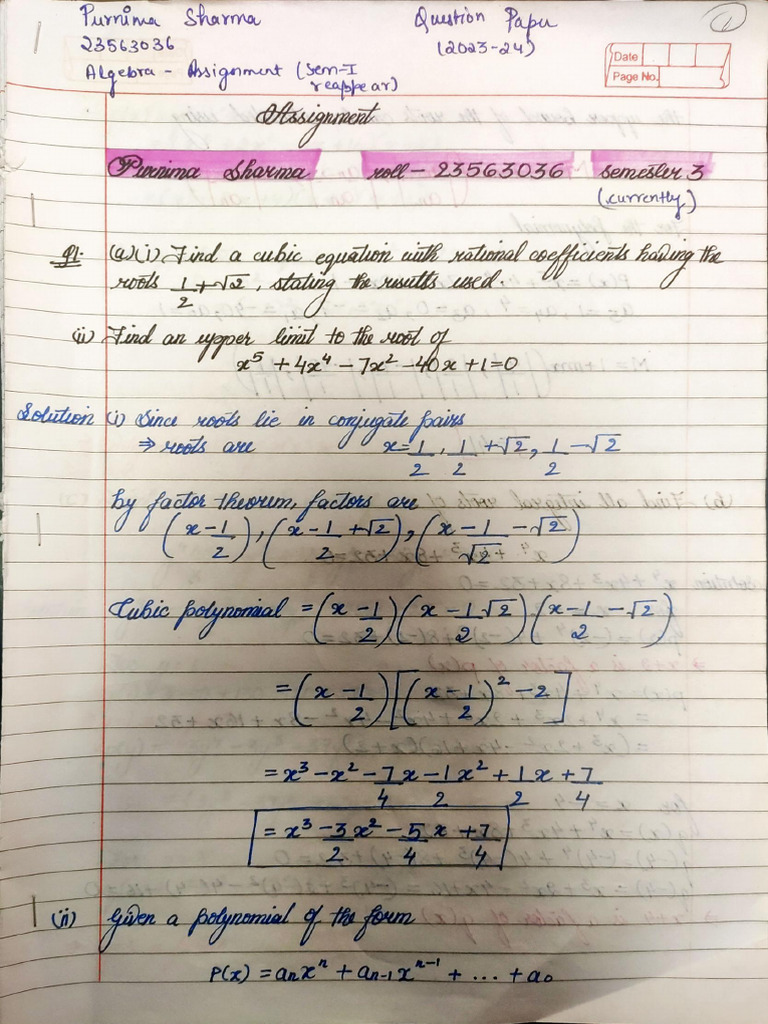 Purnima Sharma
Question Paper
1
23563036
(2023-24)
Algebra - Assignment (Sem-I reappear)
Date
Page No.
Assignment
Purnima Sharma roll - 23563036 semester 3
(currently)
Q1. (a)(i) Find a cubic equation with rational coefficients having the
roots 1/2, 1/2 + √2, stating the results used.
(ii) Find an upper limit to the root of
x⁵ + 4x⁴ - 7x² - 40x + 1 = 0
Solution (i) Since roots lie in conjugate pairs
⇒ roots are x = 1/2, 1/2 + √2, 1/2 - √2
by factor theorem, factors are
(x - 1/2), (x - 1/2 + √2), (x - 1/√2 - √2)
Cubic polynomial = (x - 1/2)(x - 1/2 √2)(x - 1/2 - √2)
= (x - 1/2)[(x - 1/2)² - 2]
= x³ - x² - 7/4 x - 1/2 x² + 1/2 x + 7/4
= x³ - 3/2 x² - 5/4 x + 7/4
(ii) Given a polynomial of the form
P(x) = aₙxⁿ + aₙ₋₁xⁿ⁻¹ + ... + a₀